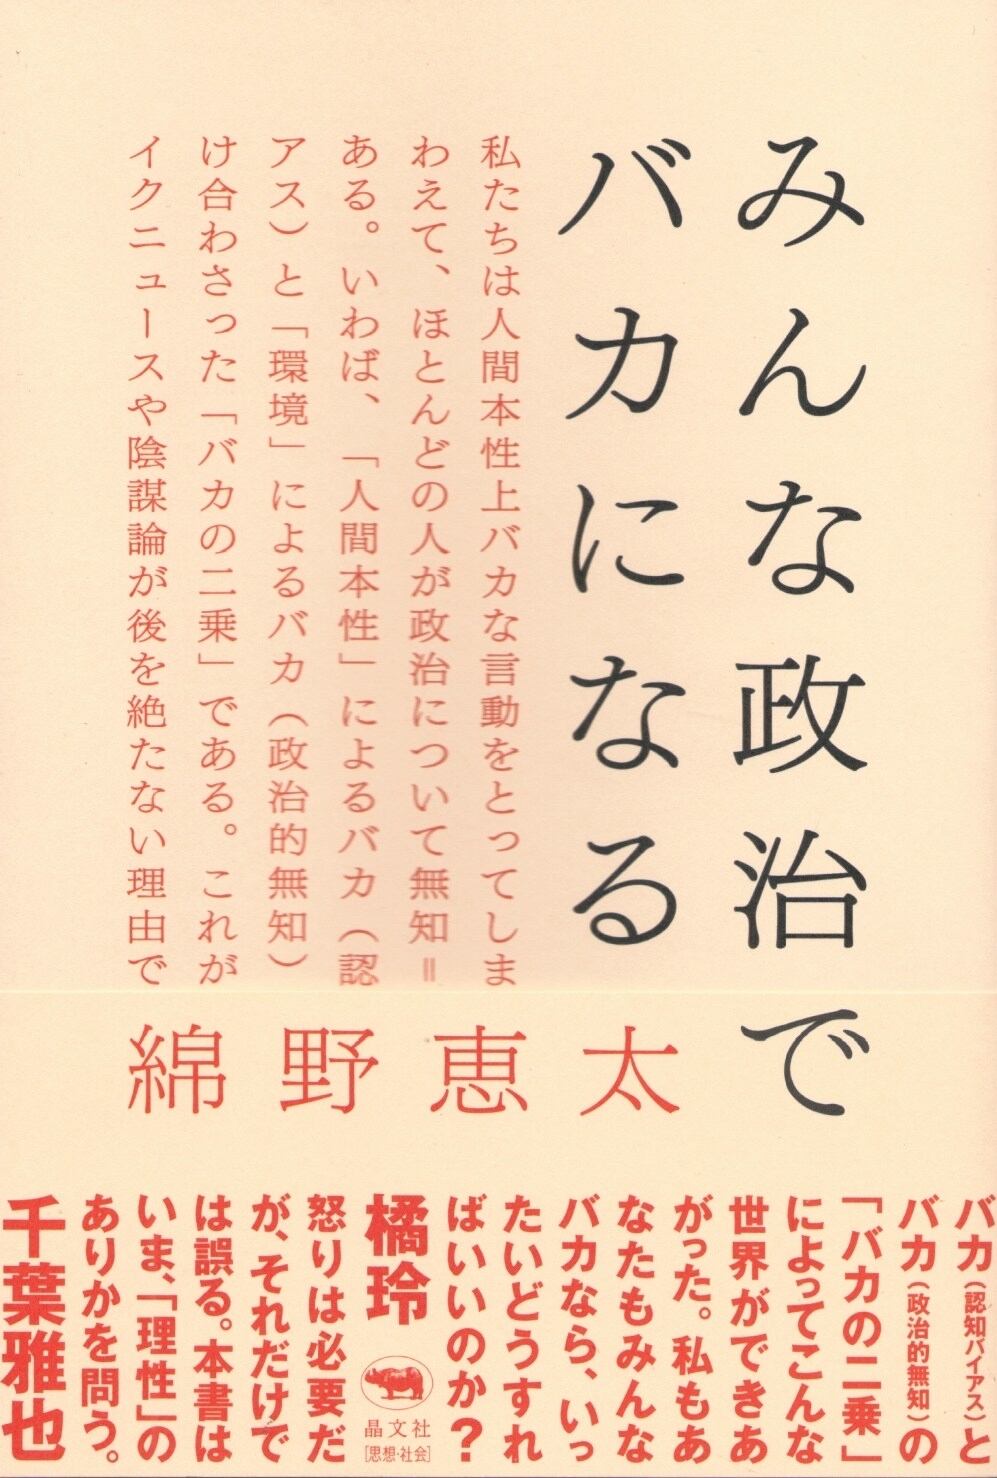 みんな政治で
バカになる
私たちは人間本性上バカな言動をとってしま
わえて、ほとんどの人が政治について無知＝
ある。いわば、「人間本性」によるバカ（認
アス）と「環境」によるバカ（政治的無知）
け合わさった「バカの二乗」である。これが
イクニュースや陰謀論が後を絶たない理由で
綿野恵太
バカ（認知バイアス）と
バカ（政治的無知）の
「バカの二乗」
によってこんな
世界ができあ
がった。私もあ
なたもみんな
バカなら、いっ
たいどうすれ
ばいいのか？
橘玲
怒りは必要だ
が、それだけで
は誤る。本書は
いま、「理性」の
ありかを問う。
千葉雅也
晶文社
[思想・社会]